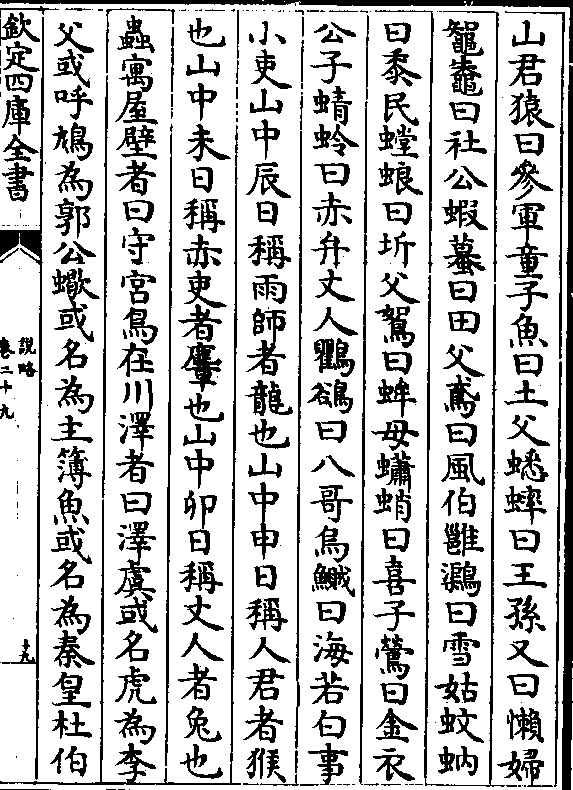 山君猿曰參軍童子魚曰土父蟋蟀曰王孫又曰懶婦
鼅鼄曰社公蝦蟇曰田父鳶曰風伯雝鸂曰雪姑蚊蚋
曰黍民螳蜋曰圻父駕曰蛑母蠨蛸曰喜子鶯曰金衣
公子蜻蛉曰赤弁丈人鸜鵒曰八哥烏鰂曰海若白事
小吏山中辰日稱雨師者龍也山中申日稱人君者猴
也山中未日稱赤吏者麞也山中卯日稱丈人者兔也
蟲寓屋壁者曰守宮鳥在川澤者曰澤虞或名虎為李
父或呼鳩為郭公蠍或名為主簿魚或名為秦皇杜伯
欽定四庫全書
說略
卷二十九
十九